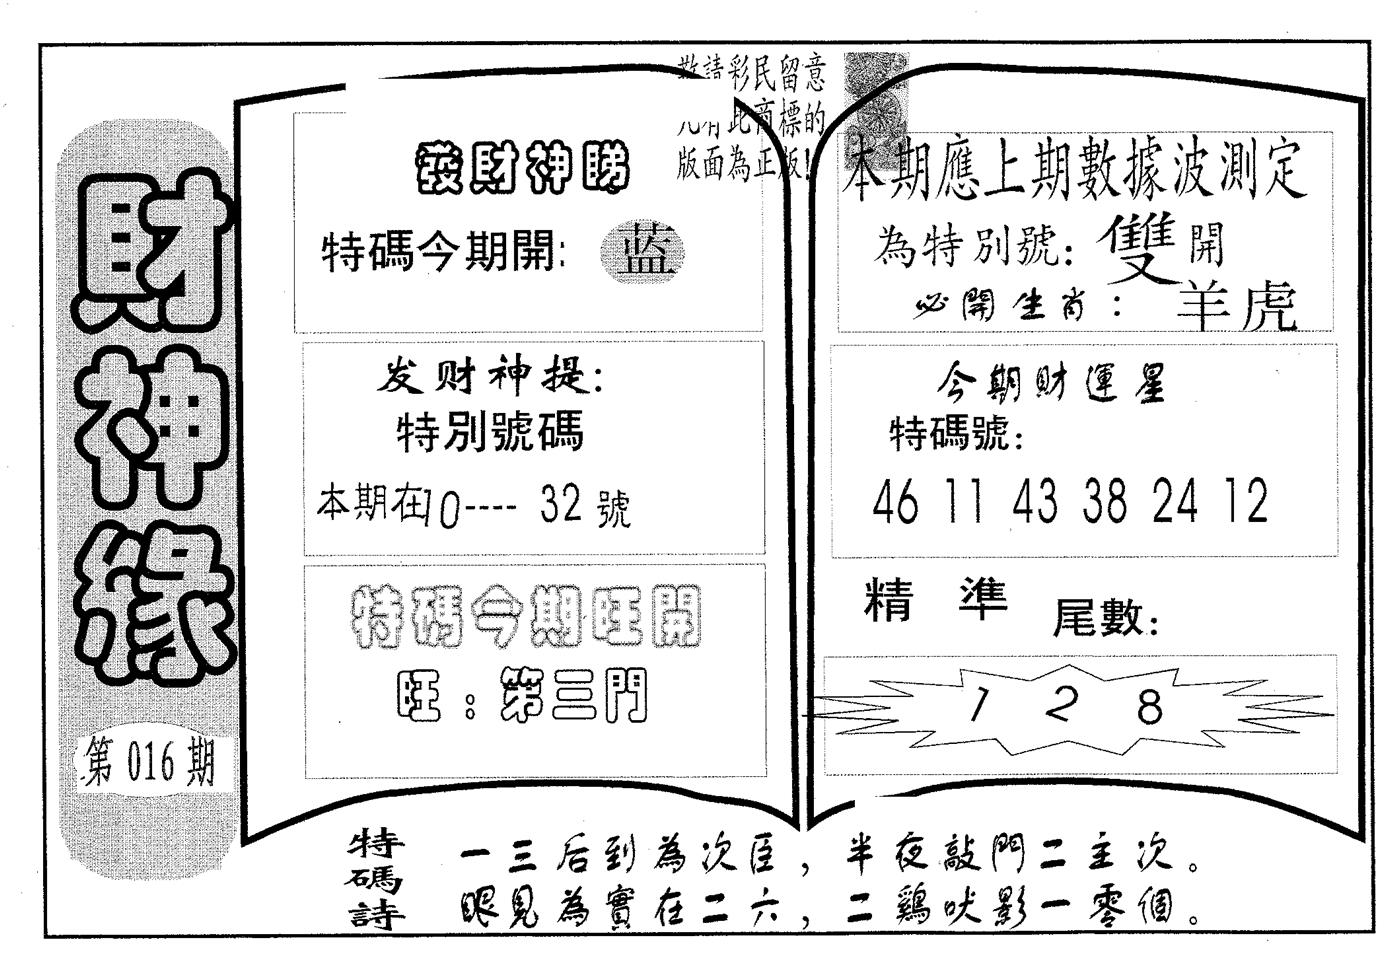 財神緣
第016期
敬請彩民留意
凡有此商標的
版面為正版!
發財神睇
特碼今期開:蓝
发财神提:
特別號碼
本期在10----32號
特碼今期旺開
旺:第三門
本期應上期數據波測定
為特別號:雙開
必開生肖:羊虎
今期財運星
特碼號:
46 11 43 38 24 12
精準尾數:
1 2 8
特碼詩
一三后到為次臣,半夜敲門二主次。
眼見為實在二六,二鷄吠影一零個。